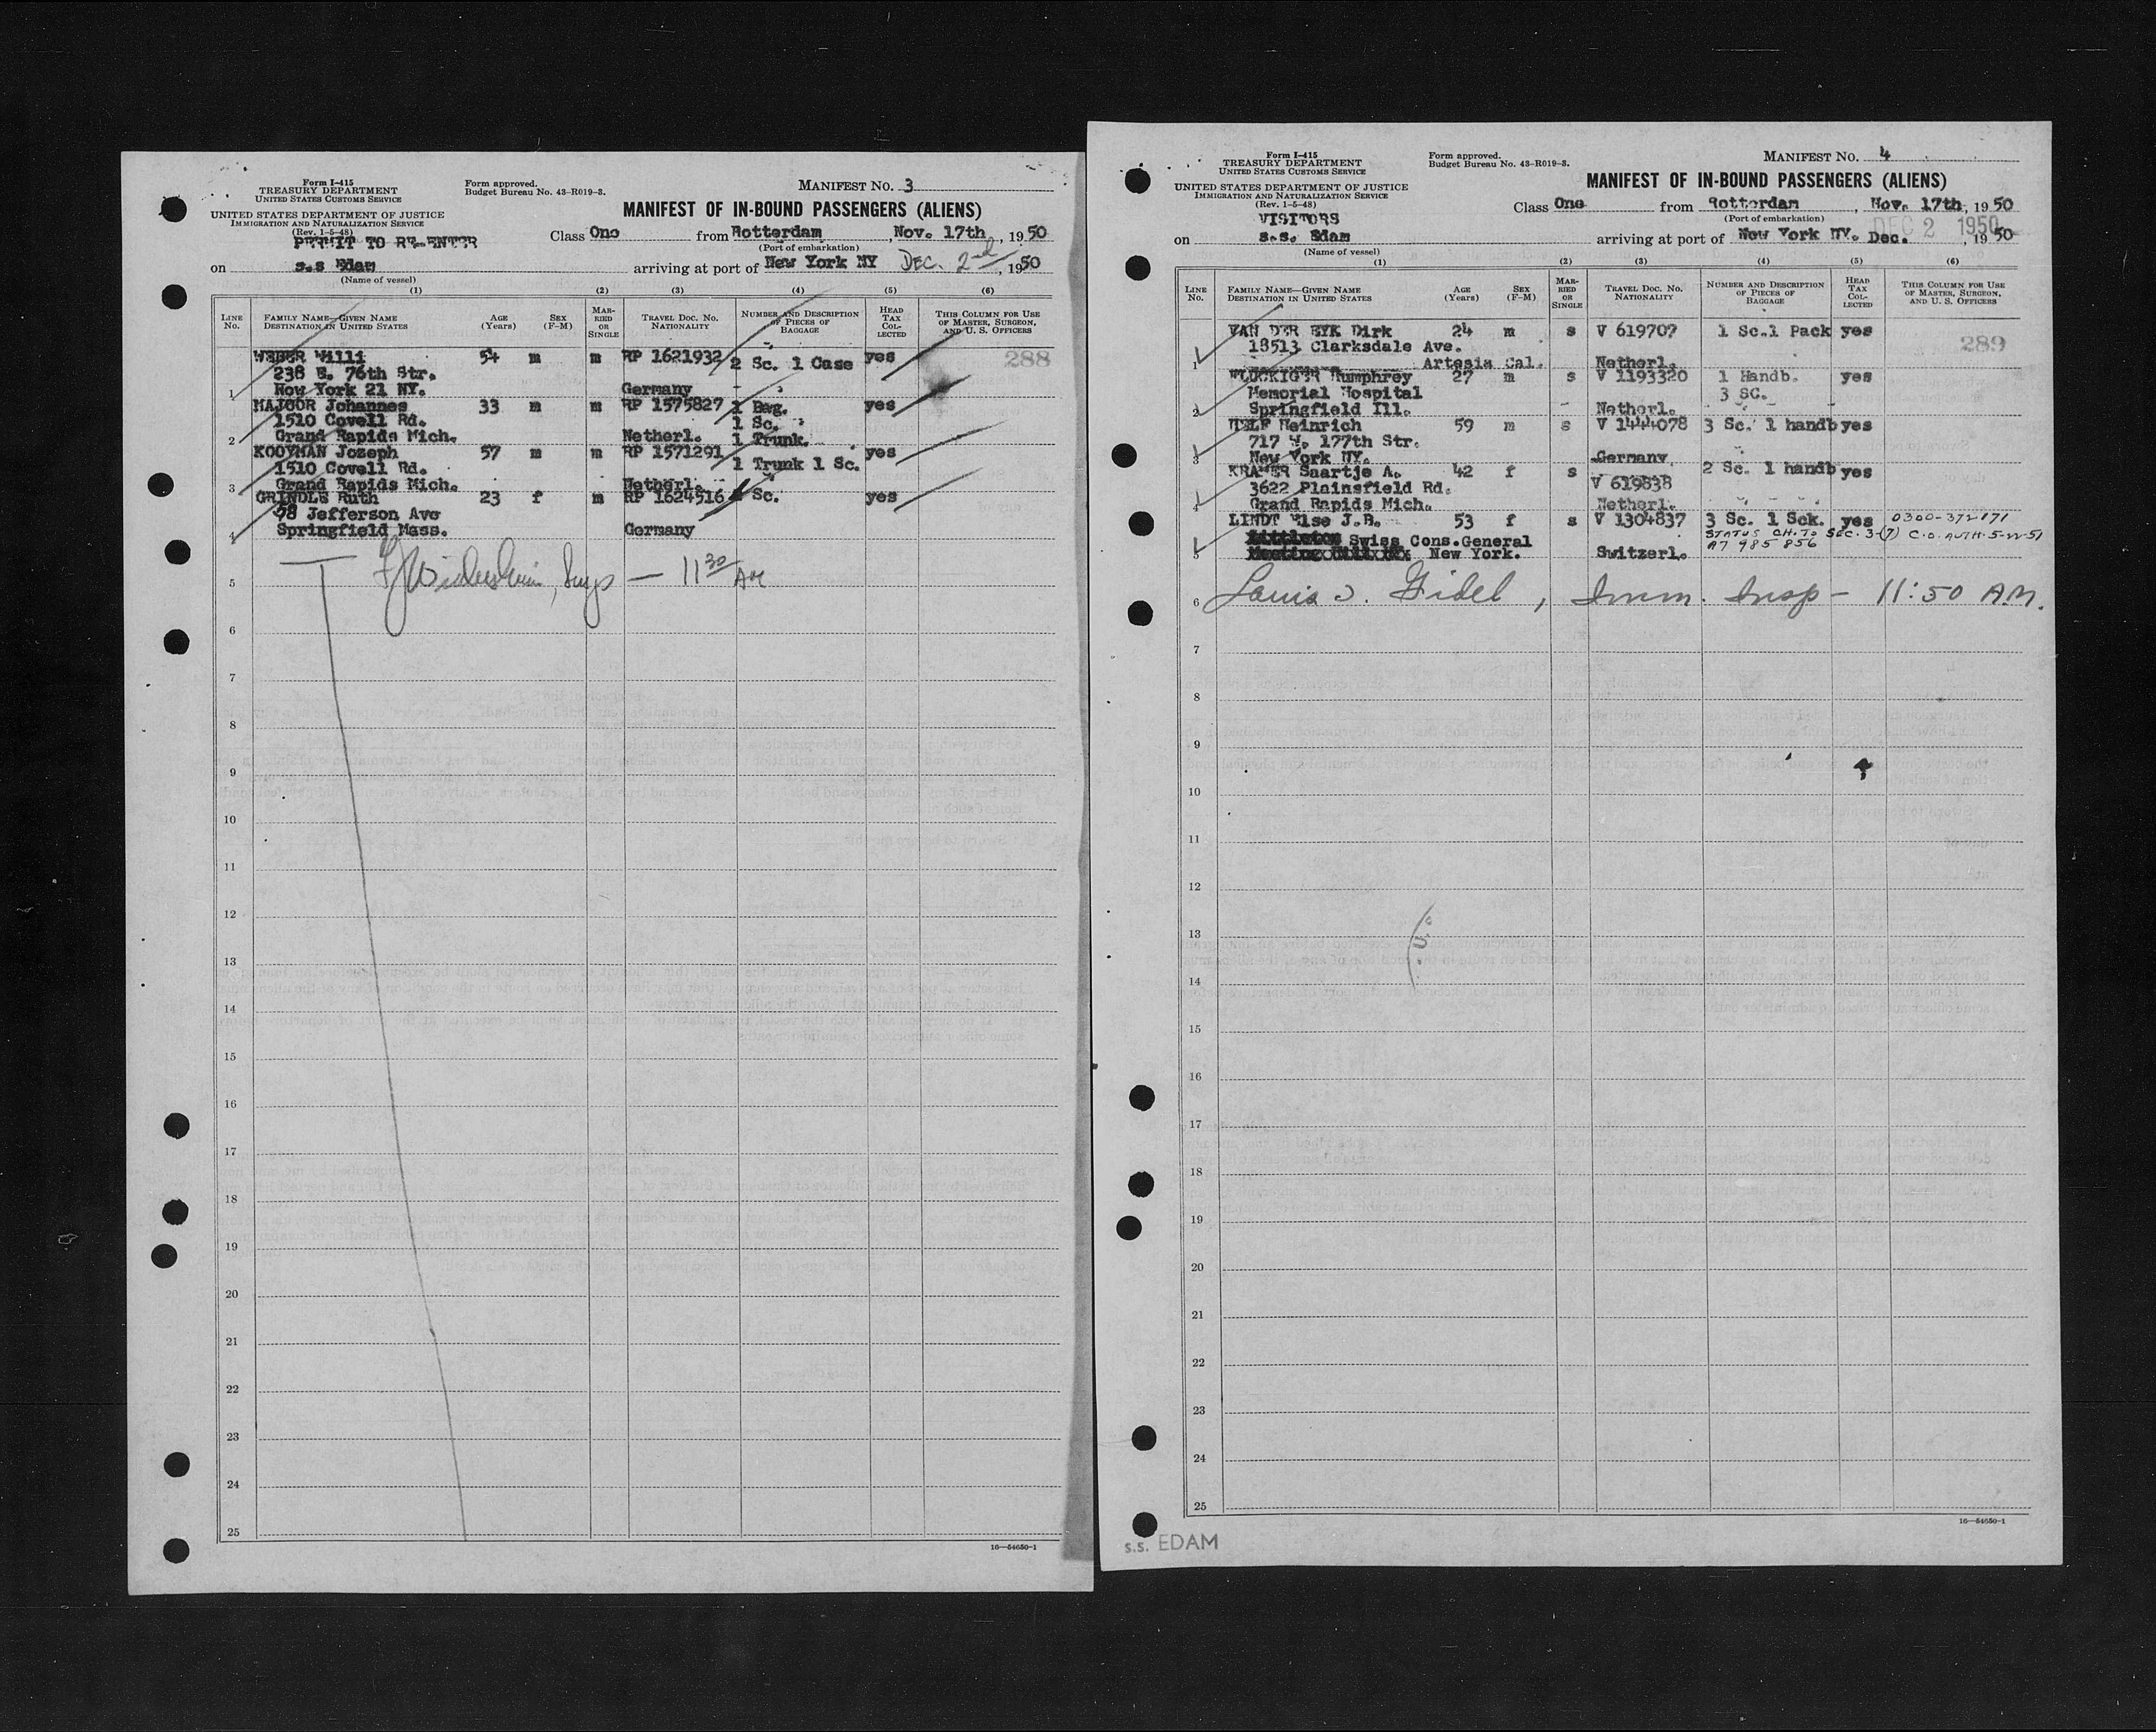 Form I-415
TREASURY DEPARTMENT
UNITED STATES CUSTOMS SERVICE
Form approved.
Budget Bureau No. 43-R019-3.
MANIFEST NO. 3
UNITED STATES DEPARTMENT OF JUSTICE
IMMIGRATION AND NATURALIZATION SERVICE
(Rev. 1-5-48)
MANIFEST OF IN-BOUND PASSENGERS (ALIENS)
PERMIT TO RE-ENTER
Class One from Rotterdam, Nov. 17th, 1950
(Port of embarkation)
on s.s Edam arriving at port of New York NY DEC. 2nd, 1950
(Name of vessel)
(1) (2) (3) (4) (5) (6)
LINE No. FAMILY NAME—GIVEN NAME DESTINATION IN UNITED STATES AGE (Years) SEX (F-M) MARRIED OR SINGLE TRAVEL DOC. NO. NATIONALITY NUMBER AND DESCRIPTION OF PIECES OF BAGGAGE HEAD TAX COLLECTED THIS COLUMN FOR USE OF MASTER, SURGEON, AND U. S. OFFICERS
288
WEBER Willi 54 m m RP 1621932 2 Sc. 1 Case yes
238 E. 76th Str.
1 New York 21 NY. Germany
MAJOOR Johannes 33 m m RP 1575827 1 Bag. yes
1510 Covell Rd. 1 Sc.
2 Grand Rapids Mich. Netherl. 1 Trunk.
KOOYMAN Jozeph 57 m m RP 1571291 1 Trunk 1 Sc. yes
1510 Covell Rd.
3 Grand Rapids Mich. Netherl.
GRINDLE Ruth 23 f m RP 1624516 1 Sc. yes
58 Jefferson Ave
4 Springfield Mass. Germany
5 — 11 30 AM
6
7
8
9
10
11
12
13
14
15
16
17
18
19
20
21
22
23
24
25
16—54650-1
Form I-415
TREASURY DEPARTMENT
UNITED STATES CUSTOMS SERVICE
Form approved.
Budget Bureau No. 43-R019-3.
MANIFEST NO. 4
UNITED STATES DEPARTMENT OF JUSTICE
IMMIGRATION AND NATURALIZATION SERVICE
(Rev. 1-5-48)
MANIFEST OF IN-BOUND PASSENGERS (ALIENS)
VISITORS
Class One from Rotterdam, Nov. 17th, 1950
(Port of embarkation)
DEC 2 1950
on s.s. Edam arriving at port of New York NY. Dec. , 1950
(Name of vessel)
(1) (2) (3) (4) (5) (6)
LINE No. FAMILY NAME—GIVEN NAME DESTINATION IN UNITED STATES AGE (Years) SEX (F-M) MARRIED OR SINGLE TRAVEL DOC. NO. NATIONALITY NUMBER AND DESCRIPTION OF PIECES OF BAGGAGE HEAD TAX COLLECTED THIS COLUMN FOR USE OF MASTER, SURGEON, AND U. S. OFFICERS
289
VAN DER EYK Dirk 24 m s V 619707 1 Sc.1 Pack yes
18513 Clarksdale Ave.
1 Artesia Cal. Netherl.
FLUCKIGER Humphrey 27 m s V 1193320 1 Handb. yes
Memorial Hospital 3 SC.
2 Springfield Ill. Netherl.
HELF Heinrich 59 m s V 1444078 3 Sc. 1 handb yes
717 W. 177th Str.
3 New York NY. Germany
KRAMER Saartje A. 42 f s V 619838 2 Sc. 1 handb yes
3622 Plainsfield Rd.
4 Grand Rapids Mich. Netherl.
LINDT Else J.B. 53 f s V 1304837 3 Sc. 1 Sck. yes 0300-372171
Swiss Cons.General STATUS CH. TO SEC. 3-(7) C.O. AUTH. 5-22-51
5 New York. Switzerl. A7 985 856
6 Louis J. Gidel, Imm. Insp — 11:50 A.M.
7
8
9
10
11
12
13
14
15
16
17
18
19
20
21
22
23
24
25
16—54650-1
s.s. EDAM